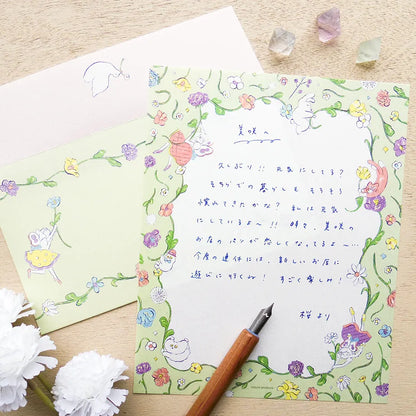 美咲へ
久しぶり!! 元気にしてる?
そちらでの暮らしも そろそろ
慣れてきたかな? 私は元気
にしているよ〜!! 時々、美咲の
お店のパンが恋しくなってるよ〜…
今度の連休には、新しいお店に
遊びに行くね! すごく楽しみ!
桜より